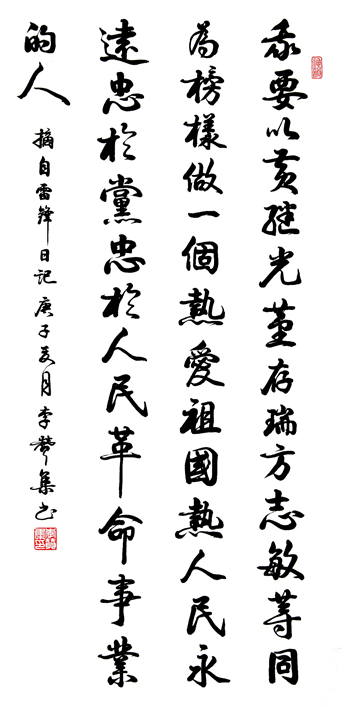 我要以黄继光董存瑞方志敏等同
為榜樣做一個熱愛祖國熱人民永
遠忠於黨忠於人民革命事業
的人
摘自雷鋒日記庚子月李集书